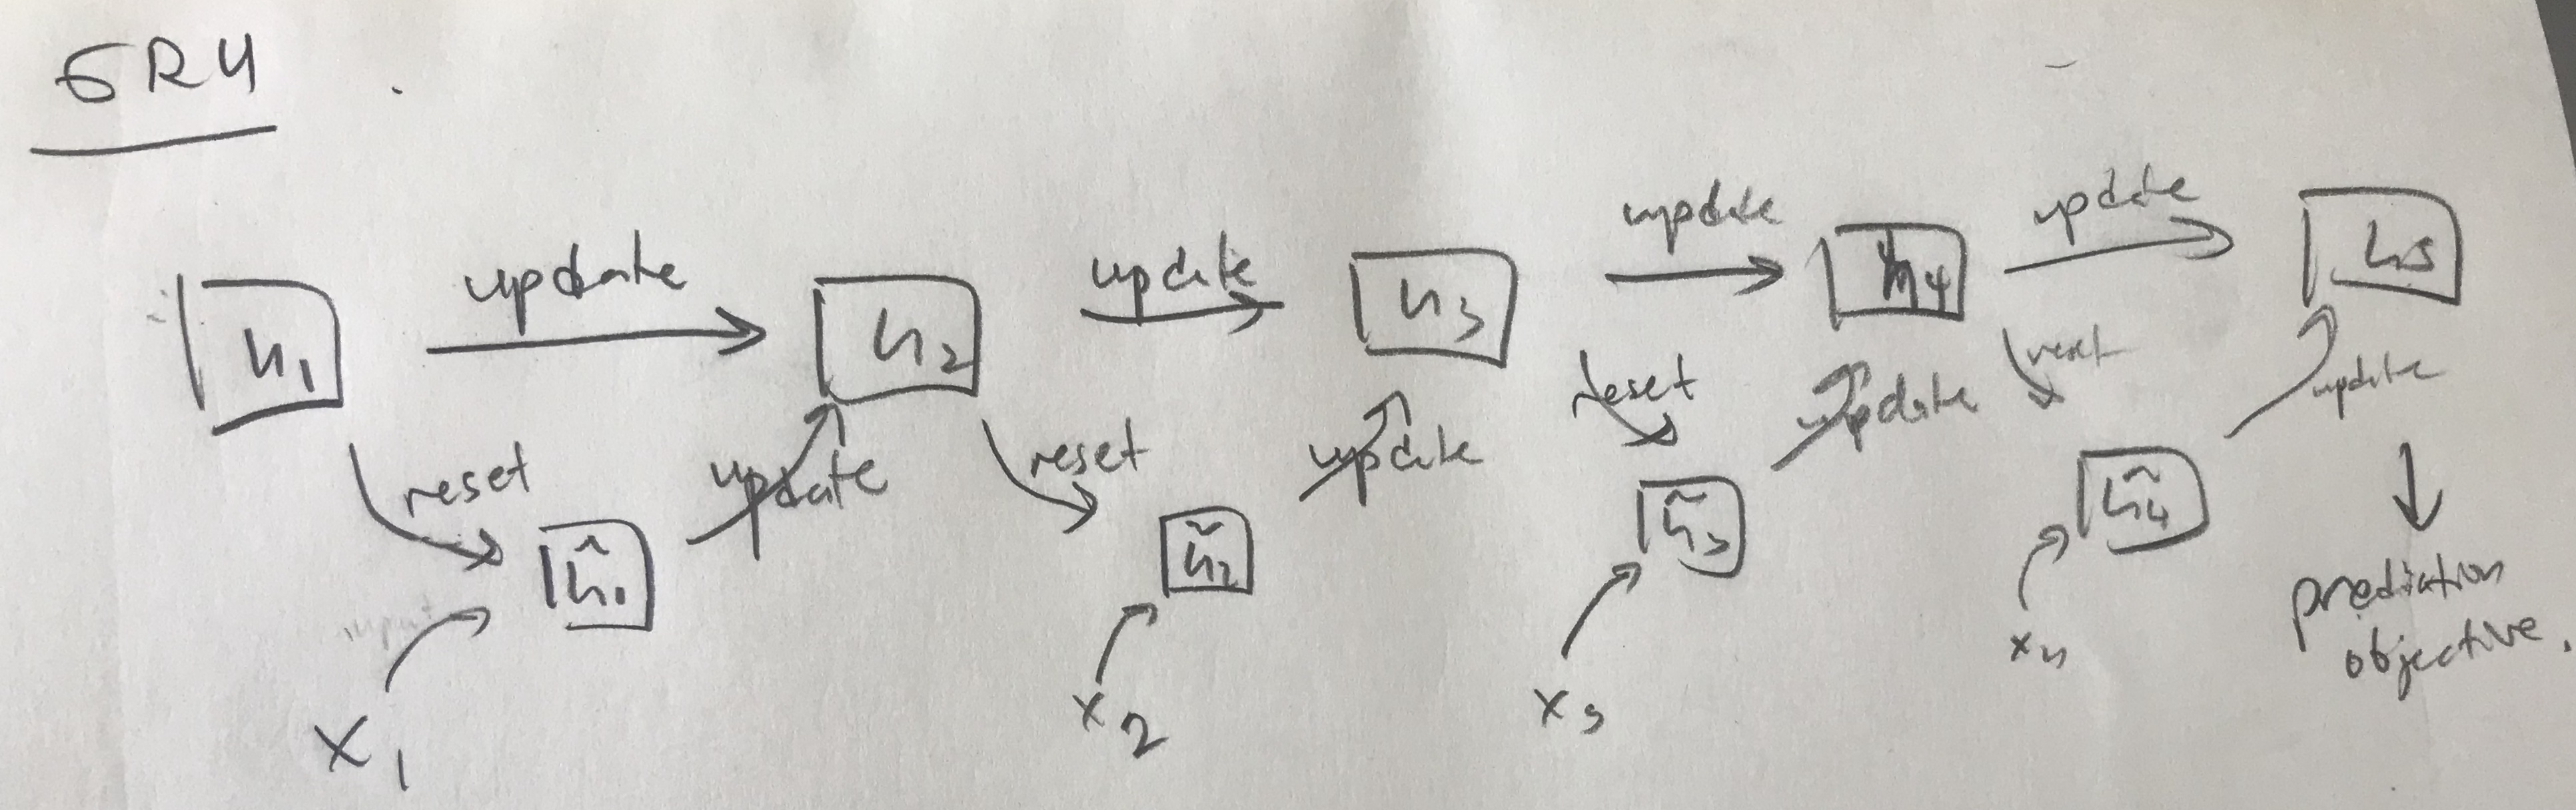 GRU
update
update
update
update
h₁
h₂
h₃
h₄
h₅
reset
update
reset
update
reset
update
reset
update
ĥ₁
h̃₂
h̃₃
h̃₄
x₁
x₂
x₃
x₄
prediction
objective.